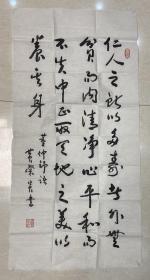 仁人之所以多寿者外无
贪而内清净心平和而
不失中正取天地之美以
养其身
董仲舒语